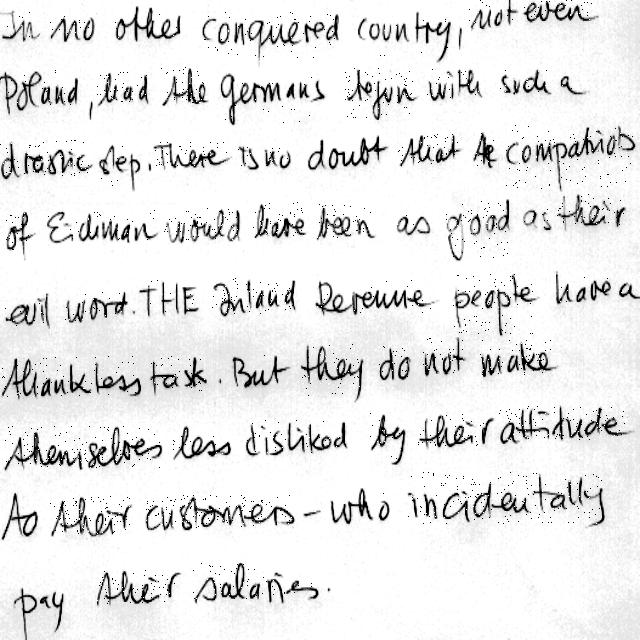 In no other conquered country, not even
Poland, had the Germans begun with such a
drastic step. There is no doubt that the compatriots
of Eichman would have been as good as their
evil word. THE Inland Revenue people have a
thankless task. But they do not make
themselves less disliked by their attitude
to their customers - who incidentally
pay their salaries.